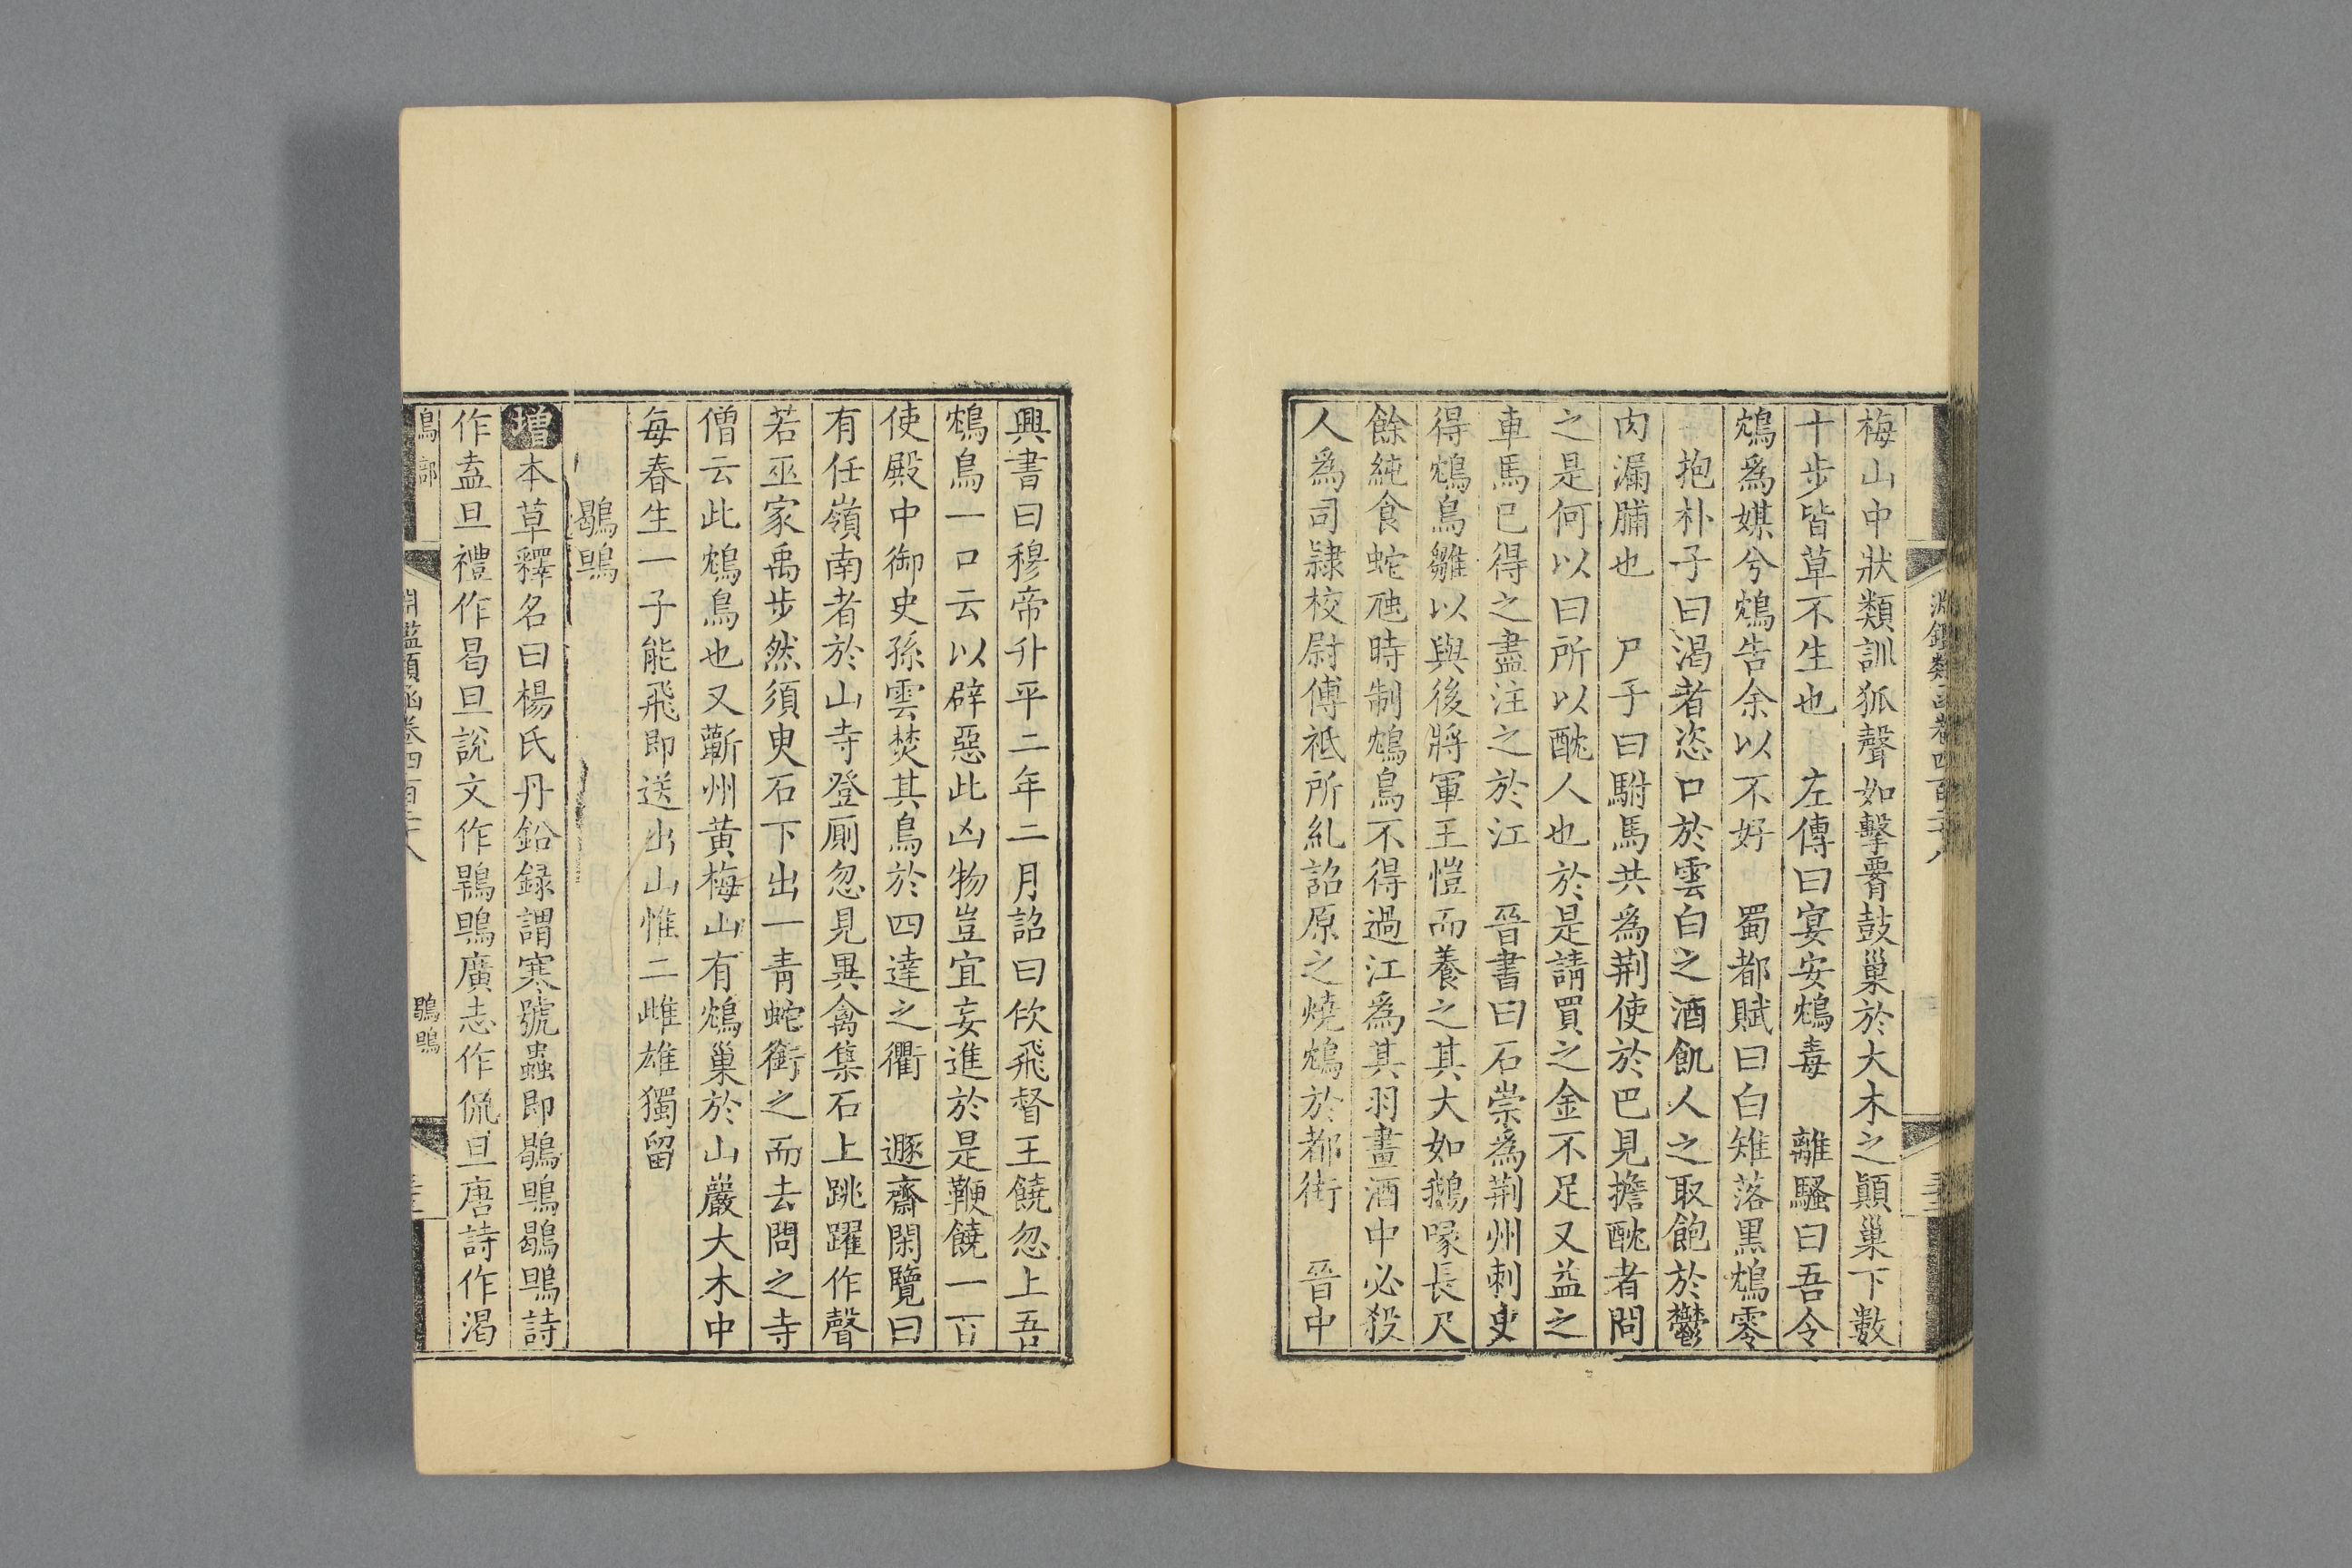 梅山中狀類訓狐聲如擊䯩鼓巢於大木之顚巢下數
十步皆草不生也　左傳曰宴安鴆毒　離騷曰吾令
鴆爲媒兮鴆告余以不好　蜀都賦曰白雉落黑鴆零
抱朴子曰渴者恣口於雲白之酒飢人之取飽於鬱
肉漏脯也　尸子曰駙馬共爲荆使於巴見擔酖者問
之是何以曰所以酖人也於是請買之金不足又益之
車馬已得之盡注之於江　晉書曰石崇爲荆州刺史
得鴆鳥雛以與後將軍王愷而養之其大如鵝喙長尺
餘純食蛇虺時制鴆鳥不得過江爲其羽畫酒中必殺
人爲司隸校尉傅祗所糺詔原之燒鴆於都街　晉中
興書曰穆帝升平二年二月詔曰佽飛督王饒忽上吾
鴆鳥一口云以辟惡此凶物豈宜妄進於是鞭饒一百
使殿中御史孫雲焚其鳥於四達之衢　遯齋閑覽曰
有任嶺南者於山寺登厠忽見異禽集石上跳躍作聲
若巫家禹步然須臾石下出一青蛇銜之而去問之寺
僧云此鴆鳥也又蘄州黃梅山有鴆巢於山巖大木中
每春生一子能飛即送出山惟二雌雄獨留
鶡鴠
增本草釋名曰楊氏丹鉛録謂寒號蟲即鶡鴠鶡鴠詩
作盍旦禮作曷旦說文作鴇鴠廣志作侃旦唐詩作渴
鳥部
淵鑑類函卷四百二十八
鶡鴠